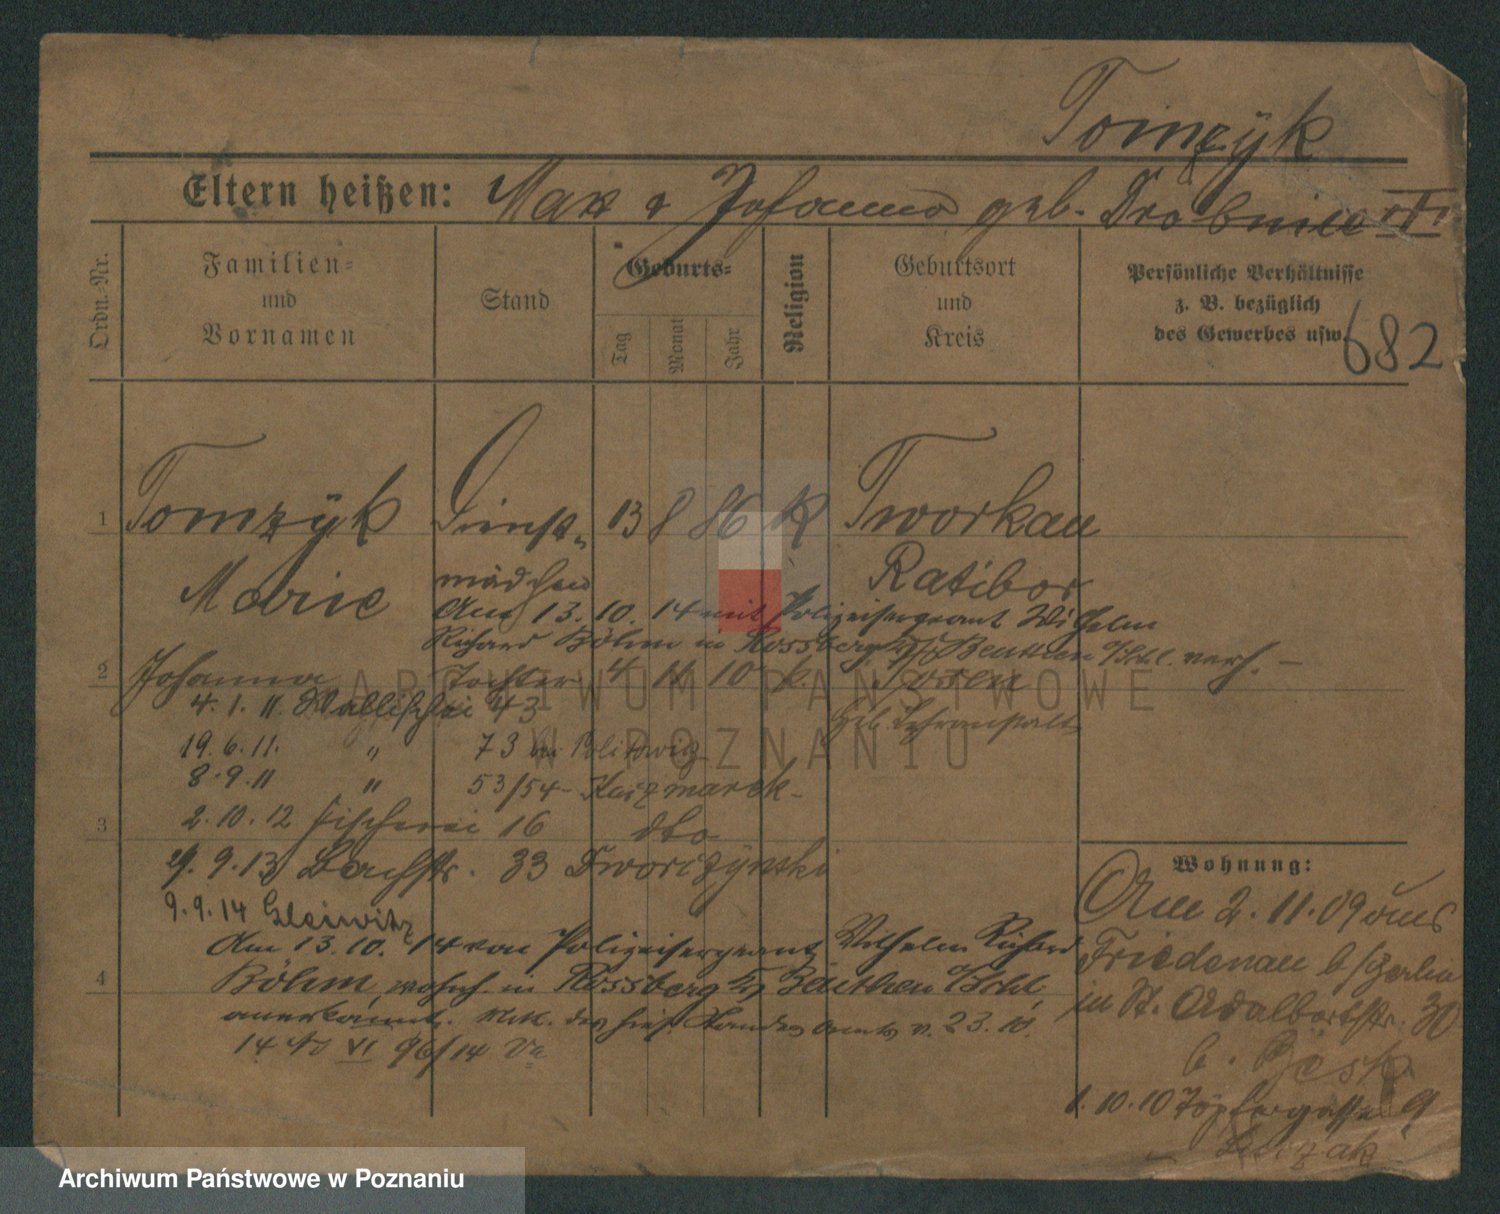 Tomzÿk
Eltern heißen: Max & Johanna geb.
Ordn.-Nr.
Familien-
und
Vornamen
Stand
Geburts-
Tag
Monat
Jahr
Religion
Geburtsort
und
Kreis
Persönliche Verhältnisse
z. B. bezüglich
des Gewerbes usw.
682
1 Tomzÿk Dienst- 13 8 86 K Tworkau
Marie mädchen Ratibor
Am 13. 10. 14 mit Polizeisergeant Wilhelm
Richard Böhm in Rossberg Beuthen O/Schl. verh. –
2 Johanna Tochter 4 11 10 k. Posen
Heb. Lehranstalt
4. 1. 11. Wallischei 43
19. 6. 11. " 73 bei
8. 9. 11 " 53/54 – Kaczmarek –
3 2. 10. 12 Fischerei 16 dto
29. 9. 13 Bachstr. 33 Dworczÿnski
9. 9. 14 Gleiwitz
Am 13. 10. 14 von Polizeisergeant Wilhelm Richard
4 Böhm, wohnh. in Rossberg Beuthen O/Schl,
anerkannt. des Standes Amts v. 23. 10.
14 No VI 96/14
Wohnung:
Am 2. 11. 09 aus
Friedenau b/Berlin
in St. Adalbertstr. 30
b.
1. 10. 10 Töpfergasse 9
ARCHIWUM PAŃSTWOWE
W POZNANIU
Archiwum Państwowe w Poznaniu